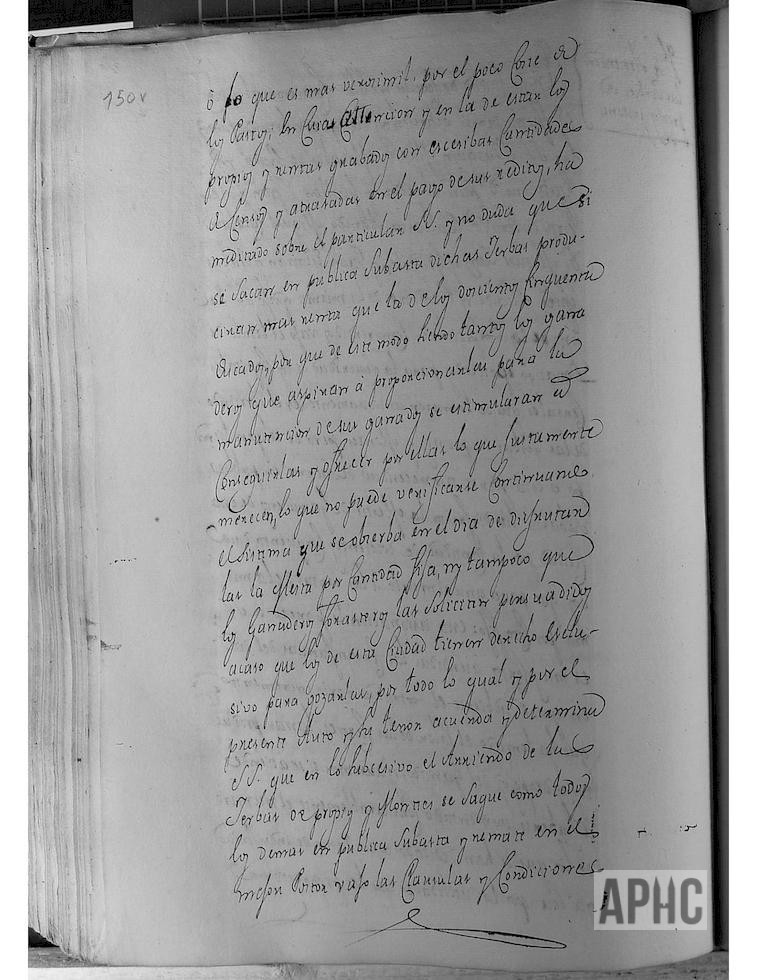 150v
ó lo que es mas verosimil, por el poco Coste de
los Pastos; en Cuia Attencion y en la de estar los
propios y rentas grabados con escesibas Cantidades
de Censos y atrasadas en el pago de sus reditos, ha
meditado sobre el particular S.S. y no duda que si
se sacan en publica Subasta dichas Ierbas produ-
ciran mas renta que la de los doscientos cinquenta
escados, por que de este modo siendo tantos los gana
deros que aspiran á proporcionarlas para la
manutencion de sus ganados se estimularan á
Conseguirlas y ofrecer por ellas lo que Justamente
merecen, lo que no puede verificarse Continuando
el sistema que se obserba en el dia de disfrutar
las la Mesta por Cantidad fija, ny tampoco que
los Ganaderos forasteros las soliciten persuadidos
acaso que los de esta Ciudad tienen derecho esclu-
sivo para gozarlas, por todo lo qual y por el
presente Auto y su tenor acuerda y determina
S.S. que en lo subcesivo el Arriendo de las
Ierbas de propios y Montes se saque como todos
los demas en publica Subasta y remate en el
mejor Postor vajo las Clausulas y Condiciones
APHC